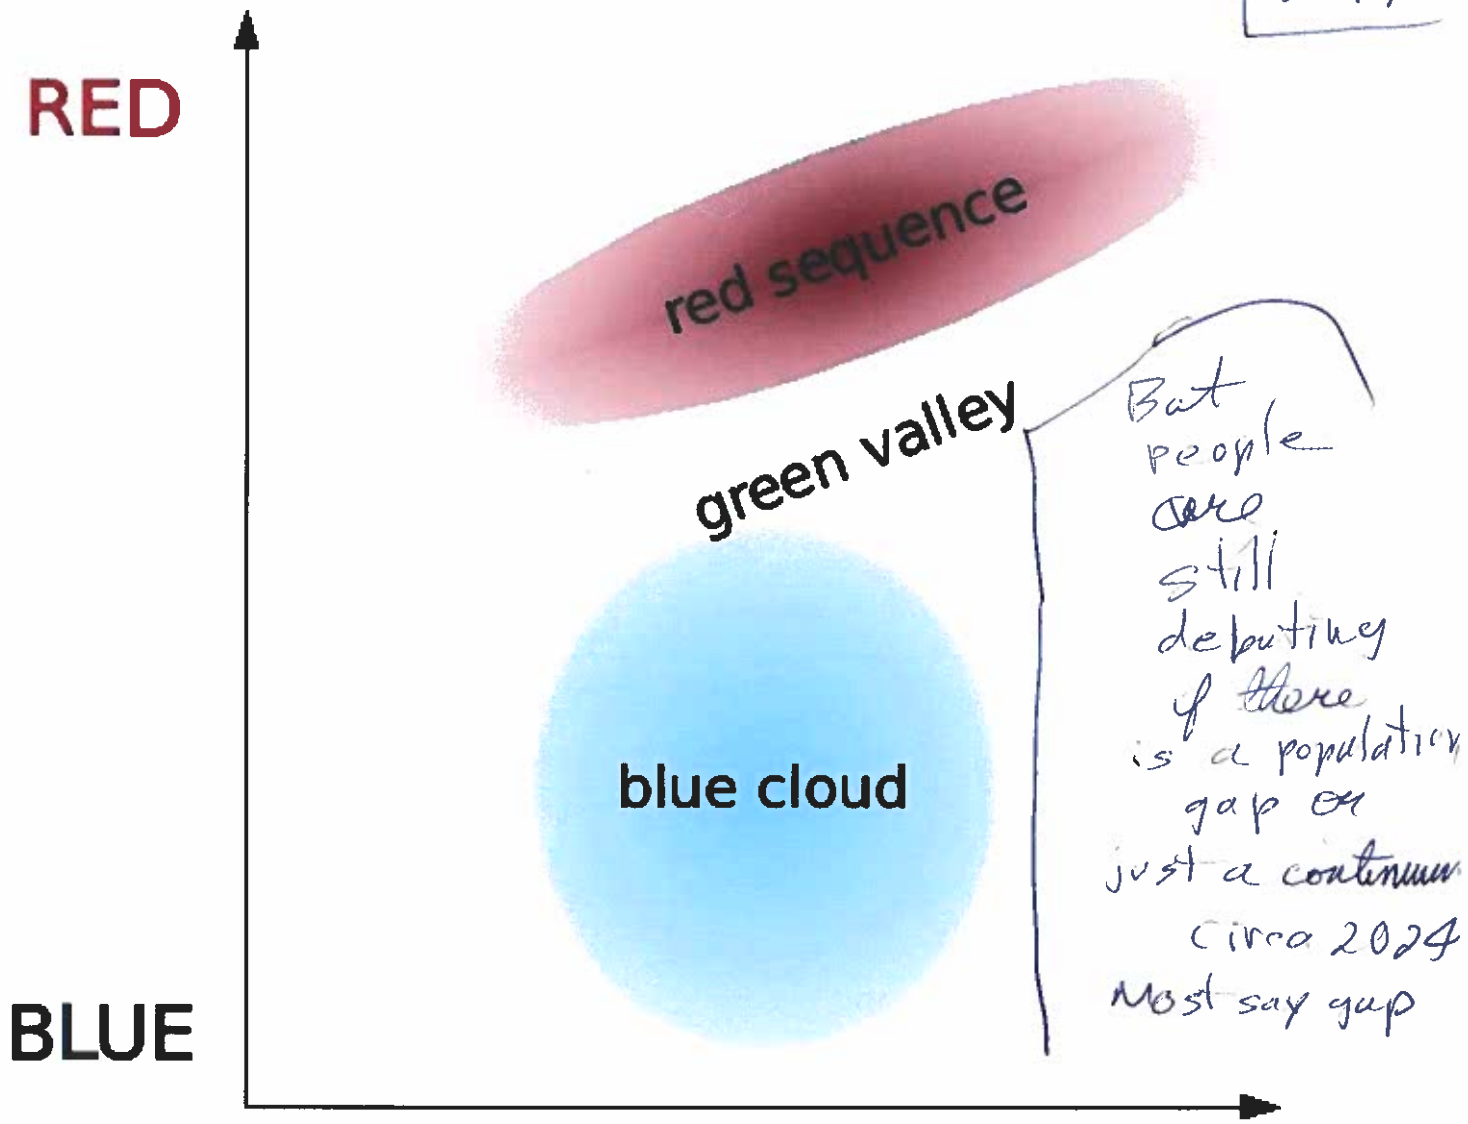 RED
red sequence
green valley
blue cloud
BLUE
But
people
are
still
debating
if there
is a population
gap or
just a continuum
Circa 2024
Most say gap